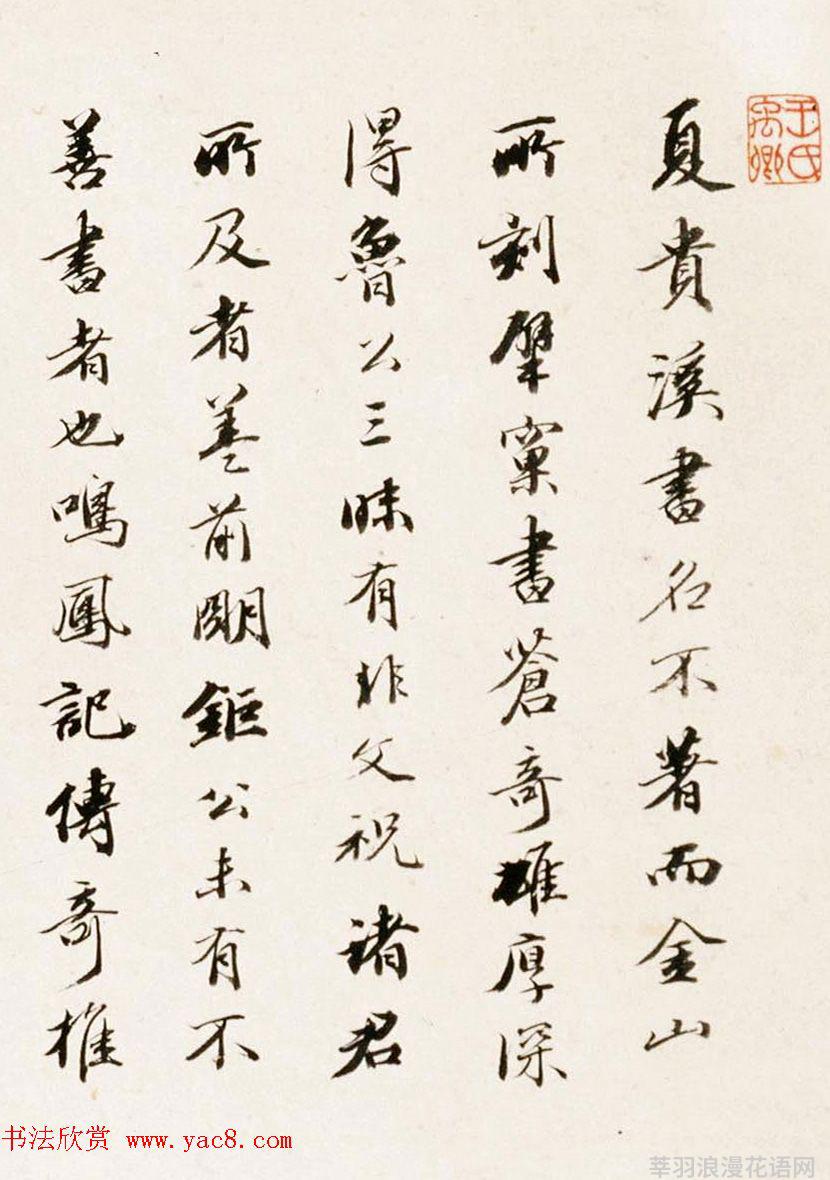 王氏禹卿
夏貴溪書名不著而金山
所刻擘窠書蒼奇雄厚深
得魯公三昧有非文祝諸君
所及者蓋前明鉅公未有不
善書者也鳴鳳記傳奇推
书法欣赏 www.yac8.com
莘羽浪漫花语网